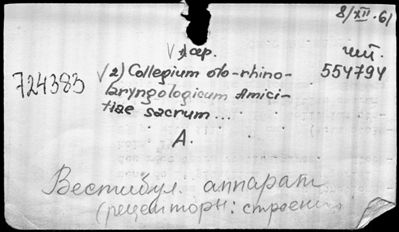 8/XII.61
√ 1 сер. чит.
724383 √ 2) Collegium oto-rhino- 554794
laryngologicum Amici-
tiae sacrum...
A.
Вестибул. аппарат
(рецепторы: строение